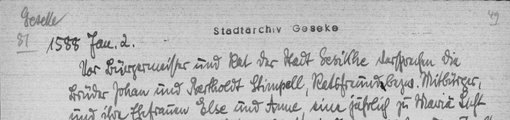 Geseke
49
Stadtarchiv Geseke
81 1588 Jan. 2.
Vor Bürgermeister und Rat der Stadt Gesikhe versprechen die
Brüder Johan und Berkholdt Stimpell, Ratsfreund bezw. Mitbürger,
und ihre Ehefrauen Else und Anne eine jährlich zu Mariä Licht